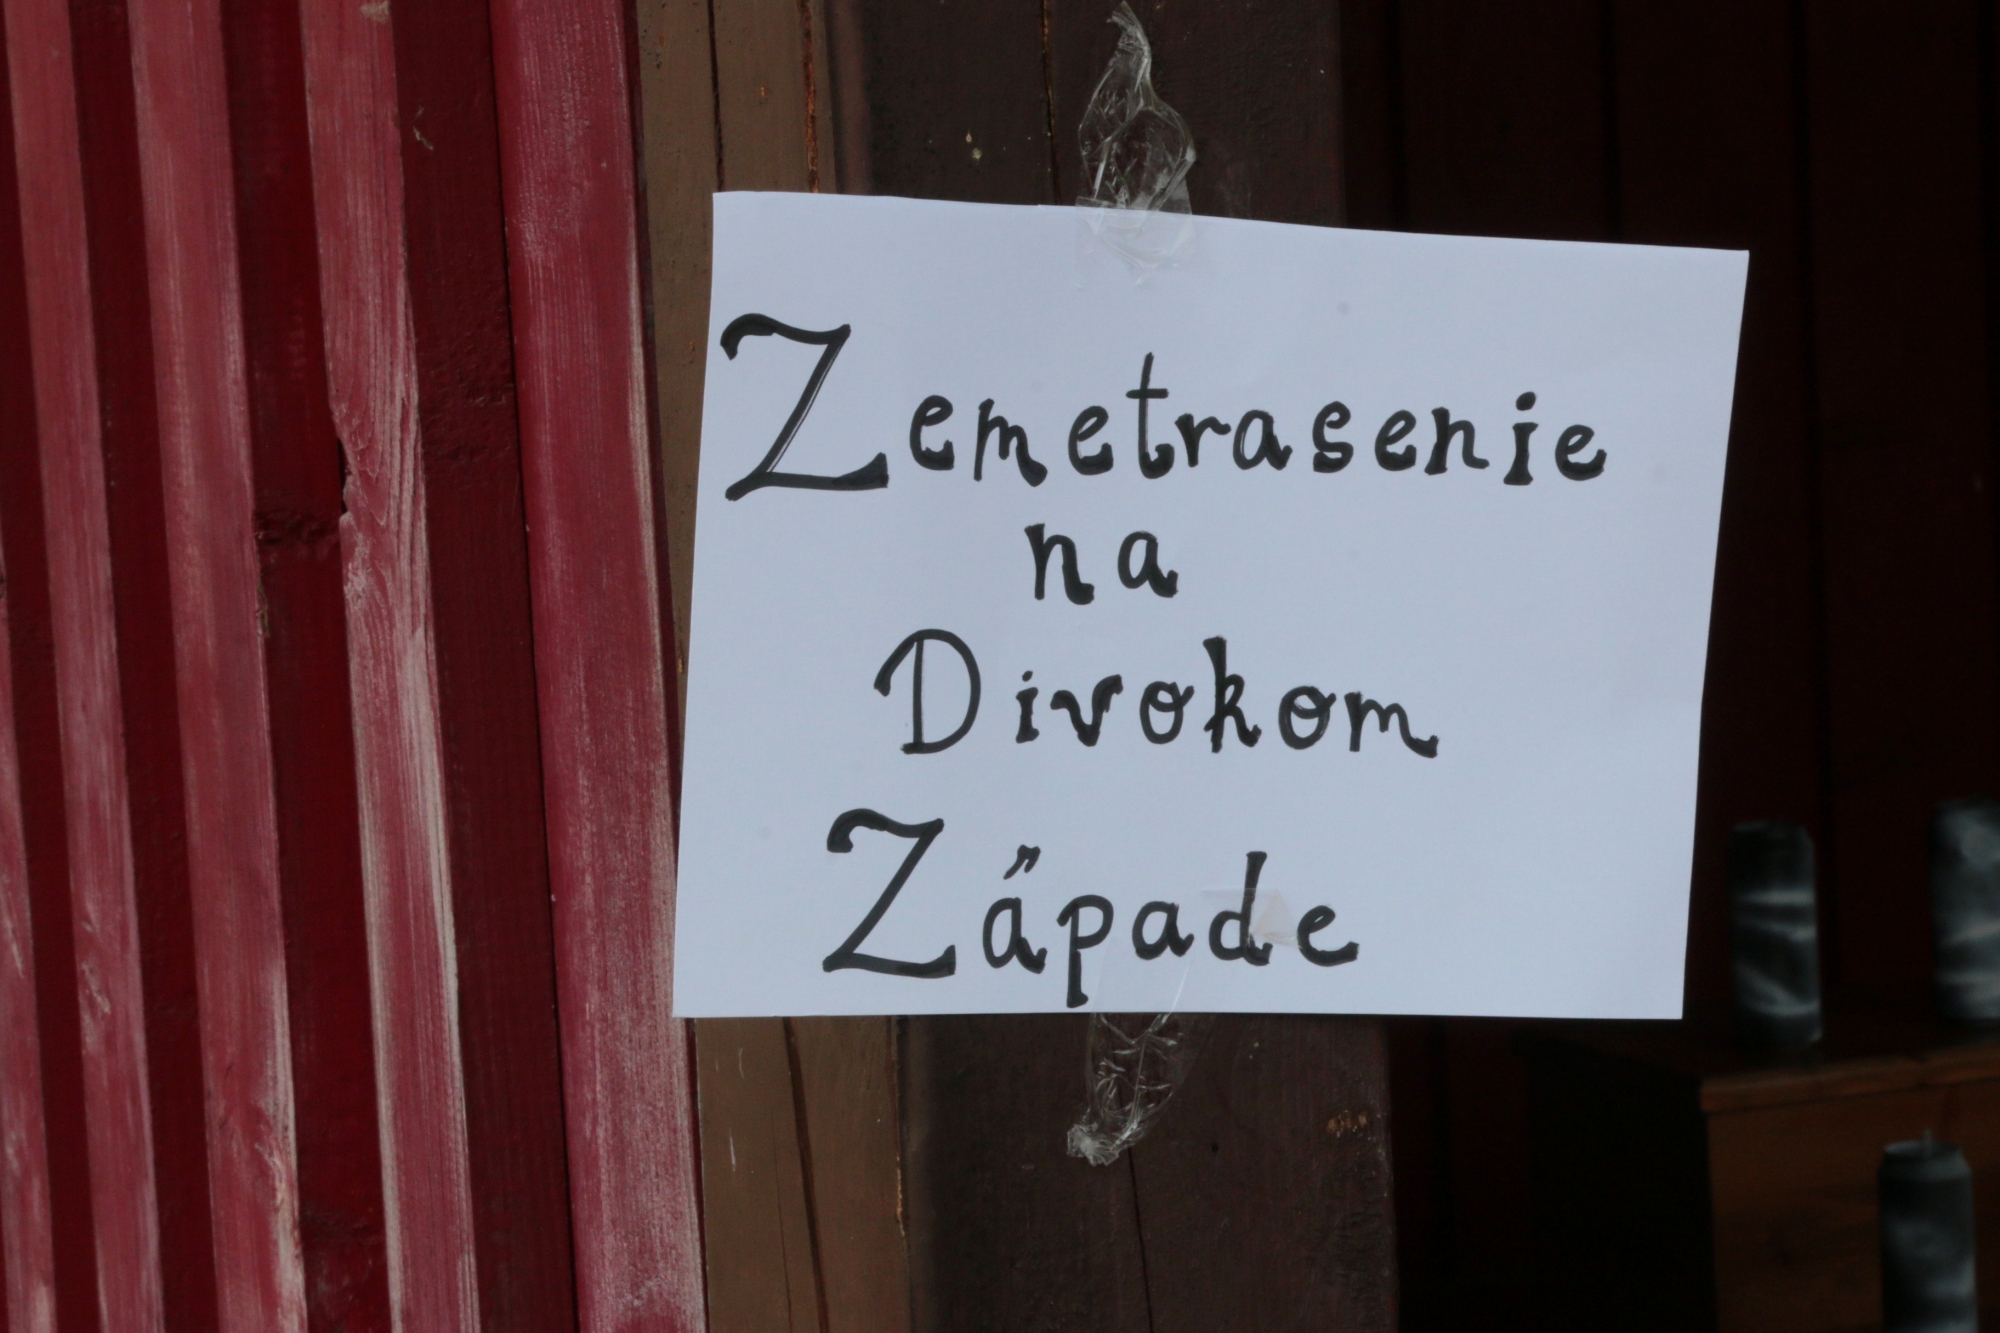 Zemetrasenie
na
Divokom
Za̋pade